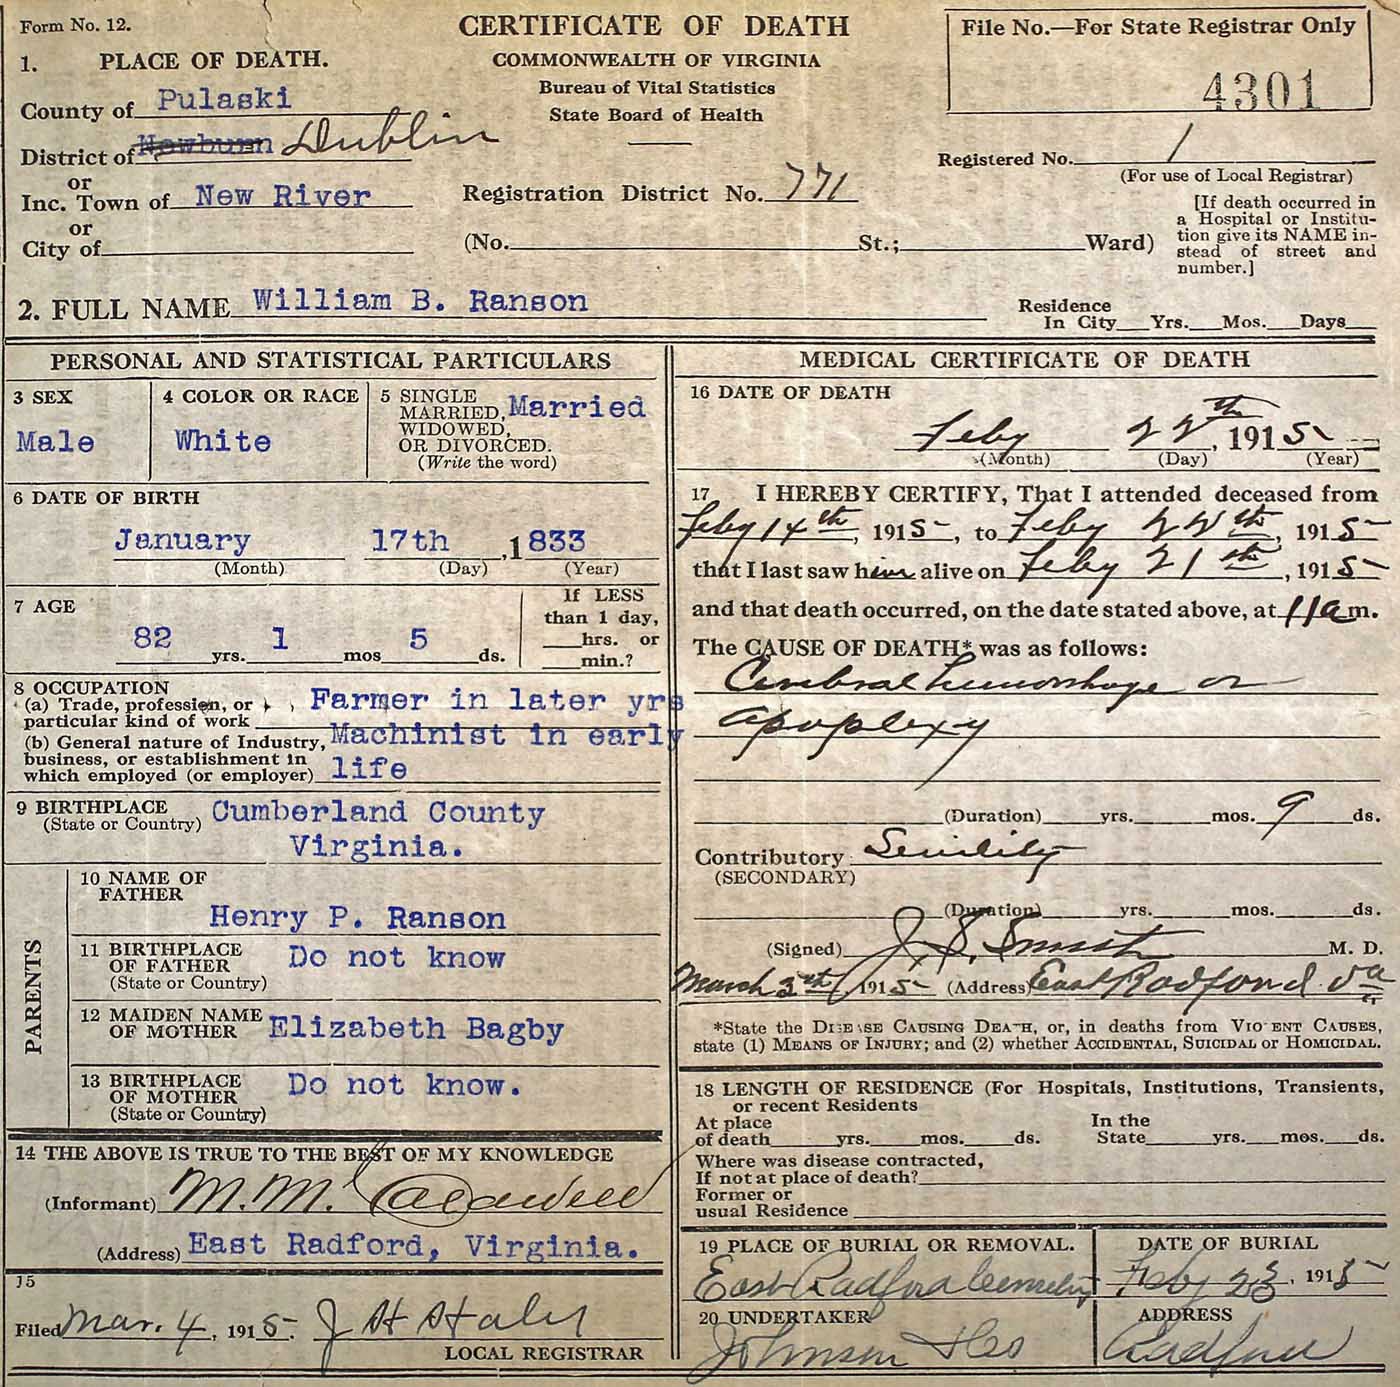 Form No. 12.
CERTIFICATE OF DEATH
COMMONWEALTH OF VIRGINIA
Bureau of Vital Statistics
State Board of Health
File No.—For State Registrar Only
4301
1. PLACE OF DEATH.
County of Pulaski
District of Newburn Dublin
or
Inc. Town of New River
or
City of
Registration District No. 771
(No. St.; Ward)
Registered No. 1
(For use of Local Registrar)
[If death occurred in
a Hospital or Institu-
tion give its NAME in-
stead of street and
number.]
2. FULL NAME William B. Ranson
Residence
In City Yrs. Mos. Days
PERSONAL AND STATISTICAL PARTICULARS
3 SEX
Male
4 COLOR OR RACE
White
5 SINGLE
MARRIED,
WIDOWED,
OR DIVORCED.
(Write the word)
Married
6 DATE OF BIRTH
January 17th, 1833
(Month) (Day) (Year)
7 AGE
82 yrs. 1 mos 5 ds.
If LESS
than 1 day,
hrs. or
min.?
8 OCCUPATION
(a) Trade, profession, or
particular kind of work
Farmer in later yrs
(b) General nature of Industry,
business, or establishment in
which employed (or employer)
Machinist in early
life
9 BIRTHPLACE
(State or Country)
Cumberland County
Virginia.
PARENTS
10 NAME OF
FATHER
Henry P. Ranson
11 BIRTHPLACE
OF FATHER
(State or Country)
Do not know
12 MAIDEN NAME
OF MOTHER
Elizabeth Bagby
13 BIRTHPLACE
OF MOTHER
(State or Country)
Do not know.
14 THE ABOVE IS TRUE TO THE BEST OF MY KNOWLEDGE
(Informant) M. M. Caldwell
(Address) East Radford, Virginia.
15
Filed Mar. 4, 1915. J H Haley
LOCAL REGISTRAR
MEDICAL CERTIFICATE OF DEATH
16 DATE OF DEATH
Feby 22th, 1915
(Month) (Day) (Year)
17 I HEREBY CERTIFY, That I attended deceased from
Feby 14th, 1915, to Feby 22th, 1915
that I last saw him alive on Feby 21th, 1915
and that death occurred, on the date stated above, at 11 a m.
The CAUSE OF DEATH* was as follows:
Cerebral hemorrhage or
apoplexy
(Duration) yrs. mos. 9 ds.
Contributory Senility
(SECONDARY)
(Duration) yrs. mos. ds.
(Signed) J. S. M. D.
March 3th, 1915 (Address) East Radford Va
*State the DISEASE CAUSING DEATH, or, in deaths from VIOLENT CAUSES,
state (1) MEANS OF INJURY; and (2) whether ACCIDENTAL, SUICIDAL or HOMICIDAL.
18 LENGTH OF RESIDENCE (For Hospitals, Institutions, Transients,
or recent Residents
At place
of death yrs. mos. ds.
In the
State yrs. mos. ds.
Where was disease contracted,
If not at place of death?
Former or
usual Residence
19 PLACE OF BURIAL OR REMOVAL.
East Radford Cemetery
DATE OF BURIAL
Feby 23, 1915
20 UNDERTAKER
Johnson & Co
ADDRESS
Radford